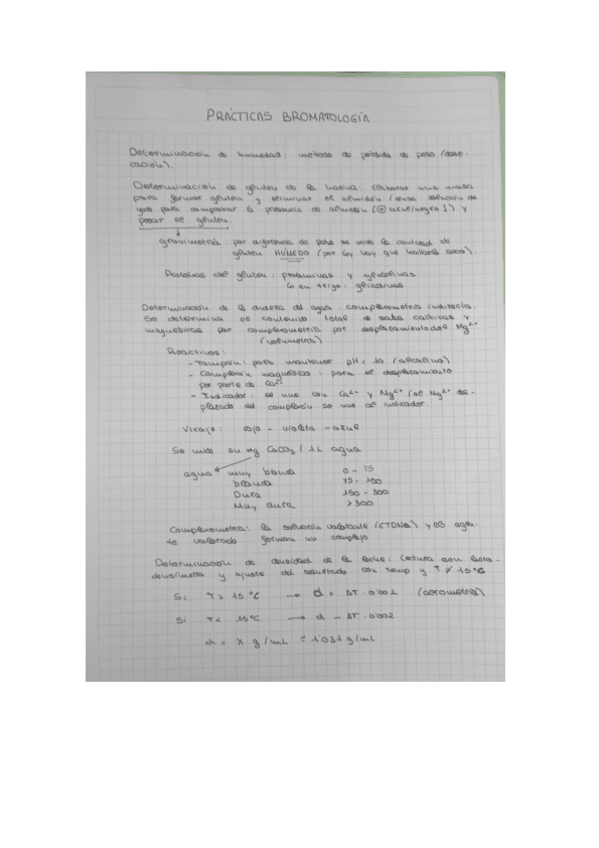 PRÁCTICAS BROMATOLOGÍA
Determinación de humedad: método de pérdida de peso (dese-
cación).
Determinación de gluten de la harina: elaborar una masa
para formar gluten y eliminar el almidón (usar solución de
yodo para comprobar la presencia de almidón (⊕ azul/negro)) y
pesar el gluten.
gravimetría: por diferencia de peso se mide la cantidad de
gluten HÚMEDO (por ley hay que hallarlo seco).
Proteínas del gluten: prolaminas y glutelinas
↳ en trigo: gliadinas
Determinación de la dureza del agua: complexometría indirecta.
Se determina el contenido total de sales cálcicas y
magnésicas por complexometría por desplazamiento del Mg²⁺
(volumetría)
Reactivos:
- Tampón: para mantener pH = 10 (alcalino)
- Complexón magnésico: para el desplazamiento
por parte de Ca²⁺
- Indicador: se une con Ca²⁺ y Mg²⁺ (el Mg²⁺ des-
plazado del complexón se une al indicador.
Viraje: rojo - violeta - azul
Se mide en mg CaCO₃ / 1L agua
agua muy blanda 0 - 75
blanda 75 - 150
Dura 150 - 300
Muy dura > 300
Complexometría: la solución valorante (EDTA) y el agen-
te valorado forman un complejo
Determinación de densidad de la leche: Lectura con lacto-
densímetro y ajuste del resultado con temp si T ≠ 15 ºC
Si T > 15 ºC → d + ΔT · 0'002 (aerometría)
Si T < 15 ºC → d - ΔT · 0'002
d = x g/mL ≈ 1'031 g/mL